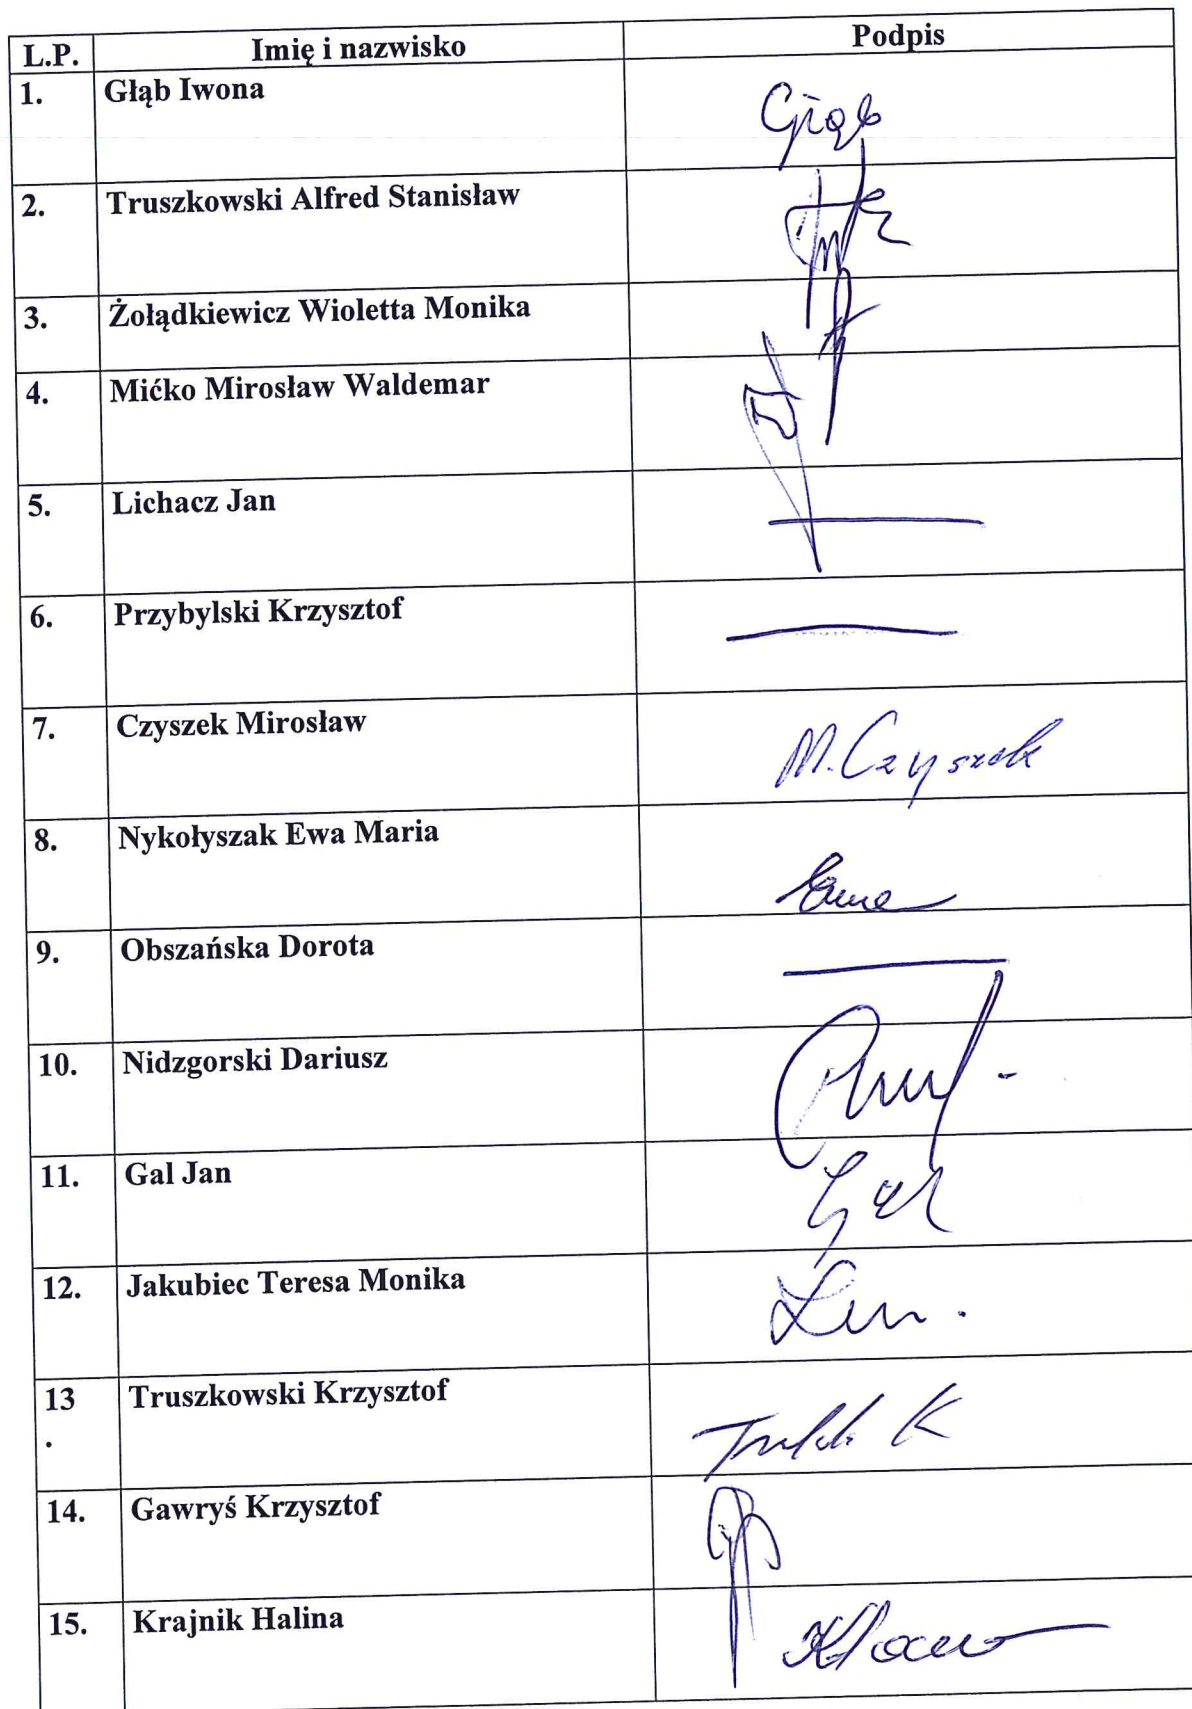 L.P. Imię i nazwisko Podpis
1. Głąb Iwona Głąb
2. Truszkowski Alfred Stanisław
3. Żołądkiewicz Wioletta Monika
4. Mićko Mirosław Waldemar
5. Lichacz Jan
6. Przybylski Krzysztof
7. Czyszek Mirosław M. Czyszek
8. Nykołyszak Ewa Maria
9. Obszańska Dorota
10. Nidzgorski Dariusz
11. Gal Jan Gal
12. Jakubiec Teresa Monika
13 Truszkowski Krzysztof
.
14. Gawryś Krzysztof
15. Krajnik Halina